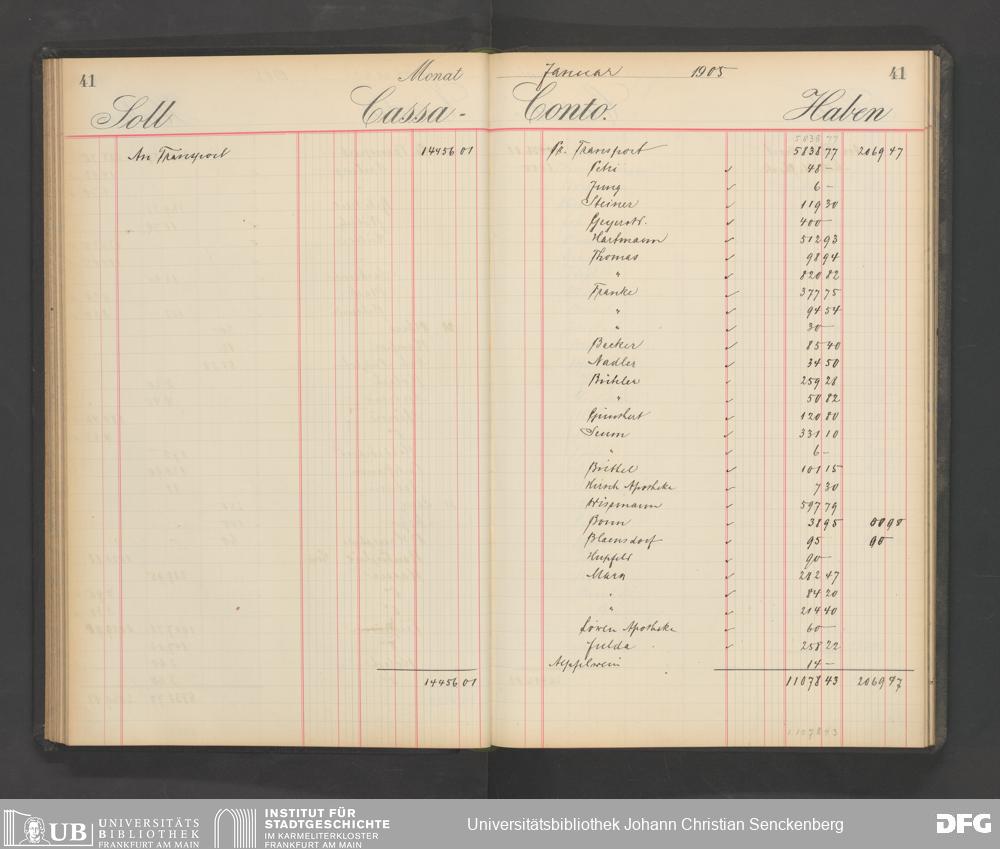 41
Monat
Soll
Cassa-
An Transport 14456 01
14456 01
Januar 1905
41
Conto.
Haben
5838 77
Pr. Transport 5838 77 2069 47
Petri 48 —
Jung 6 —
Steiner 119 30
Geyerstr. 400 —
Hartmann 512 93
Thomas 98 94
" 820 82
Franke 377 75
" 94 54
" 30 —
Becker 85 40
Nadler 34 50
259 28
" 50 82
120 80
Seum 331 10
" 6 —
101 15
Hirsch Apotheke 7 30
Wissmann 597 79
Bonn 38 95
Blaensdorf 95 90
Hupfeld 90 —
Marx 282 47
" 84 20
" 214 40
Löwen Apotheke 60 —
Fulda 258 22
Aepfelwein 14 —
11078 43 2069 47
11078 43
UB UNIVERSITÄTS
BIBLIOTHEK
FRANKFURT AM MAIN
INSTITUT FÜR
STADTGESCHICHTE
IM KARMELITERKLOSTER
FRANKFURT AM MAIN
Universitätsbibliothek Johann Christian Senckenberg
DFG